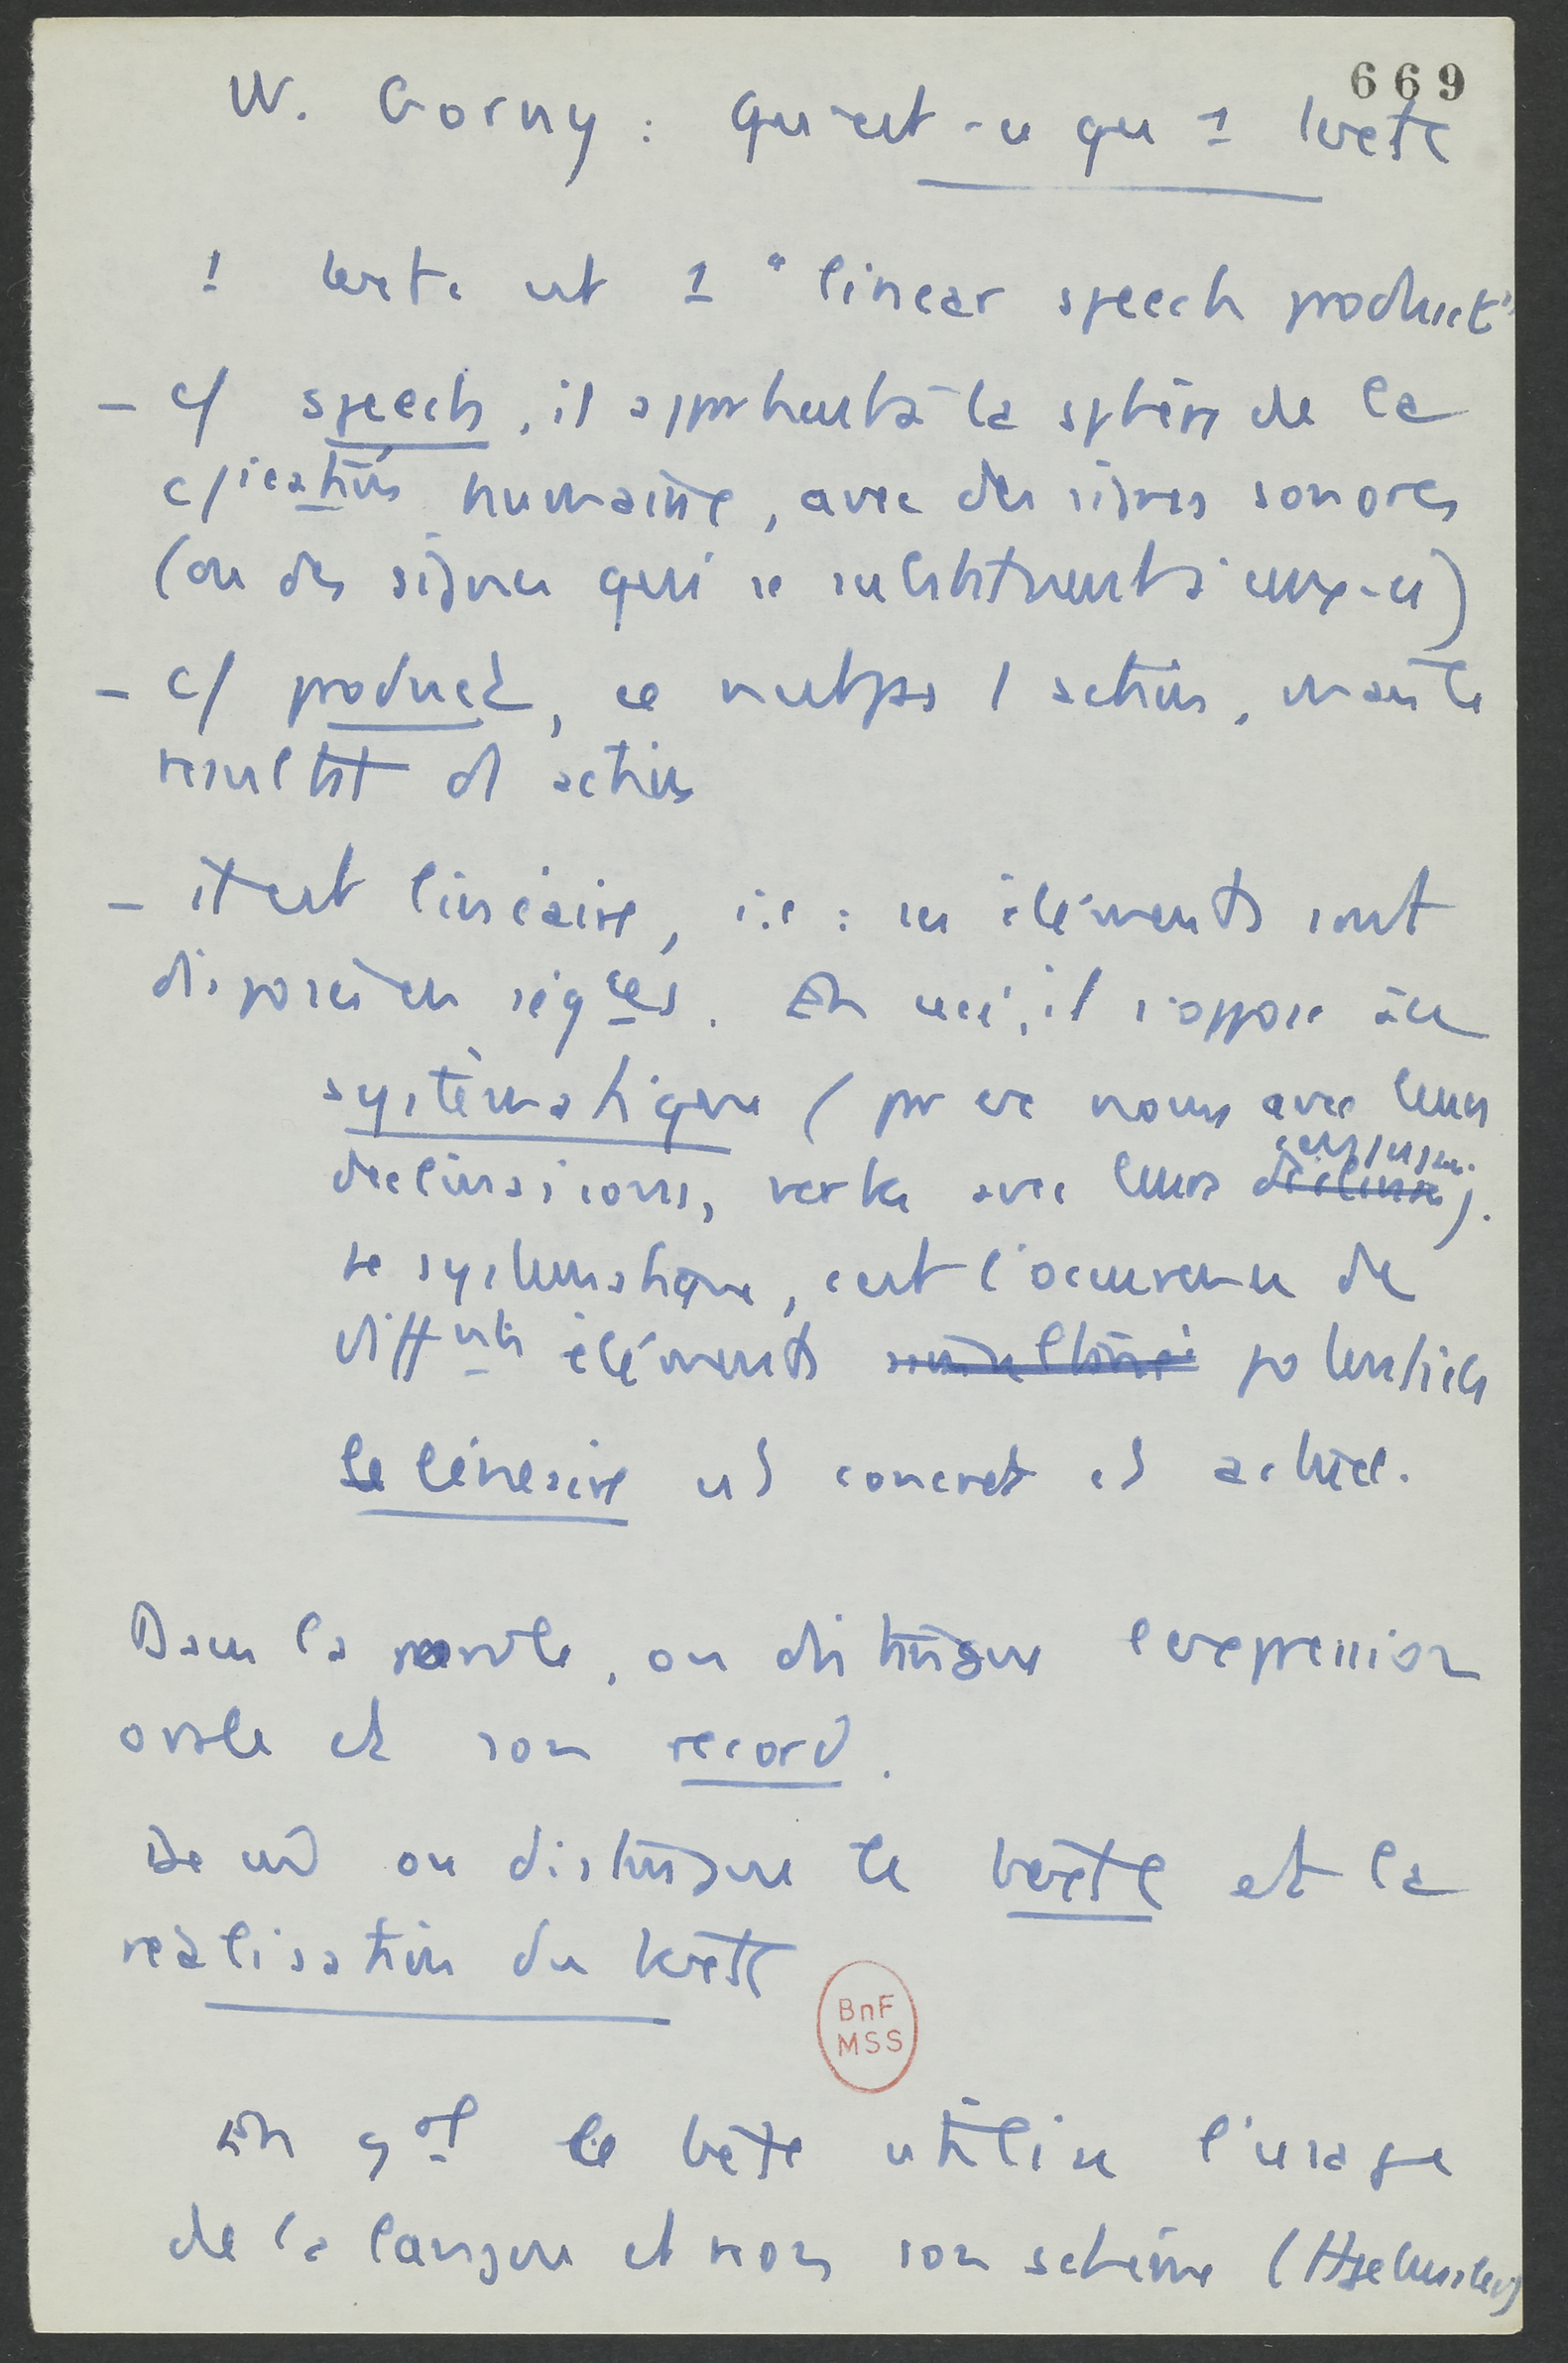 669
W. Gorny : Qu'est-ce qu 1 texte
1 texte est 1 "linear speech product"
- c/ speech, il appartient à la sphère de la
c/ication humaine, avec des signes sonores
(ou des signes qui se substituent à eux-ci)
- c/ product, ce n'est pas 1 action, mais le
résultat d' action
- il est linéaire, i.e : ses éléments sont
disposés en séqces. En ceci, il s'oppose au
systématique (par ex noms avec leurs
déclinaisons, verbes avec leurs déclinai conjugais.).
le systématique, c'est l'occurrence de
diffents éléments simultanés potentiels
Le linéaire est concret et actuel.
Dans la parole, on distingue l'expression
orale et son record.
De m̂ on distingue le texte et la
réalisation du texte
BnF
MSS
En gal le texte utilise l'usage
de la langue et non son schéma (Hjelmslev)